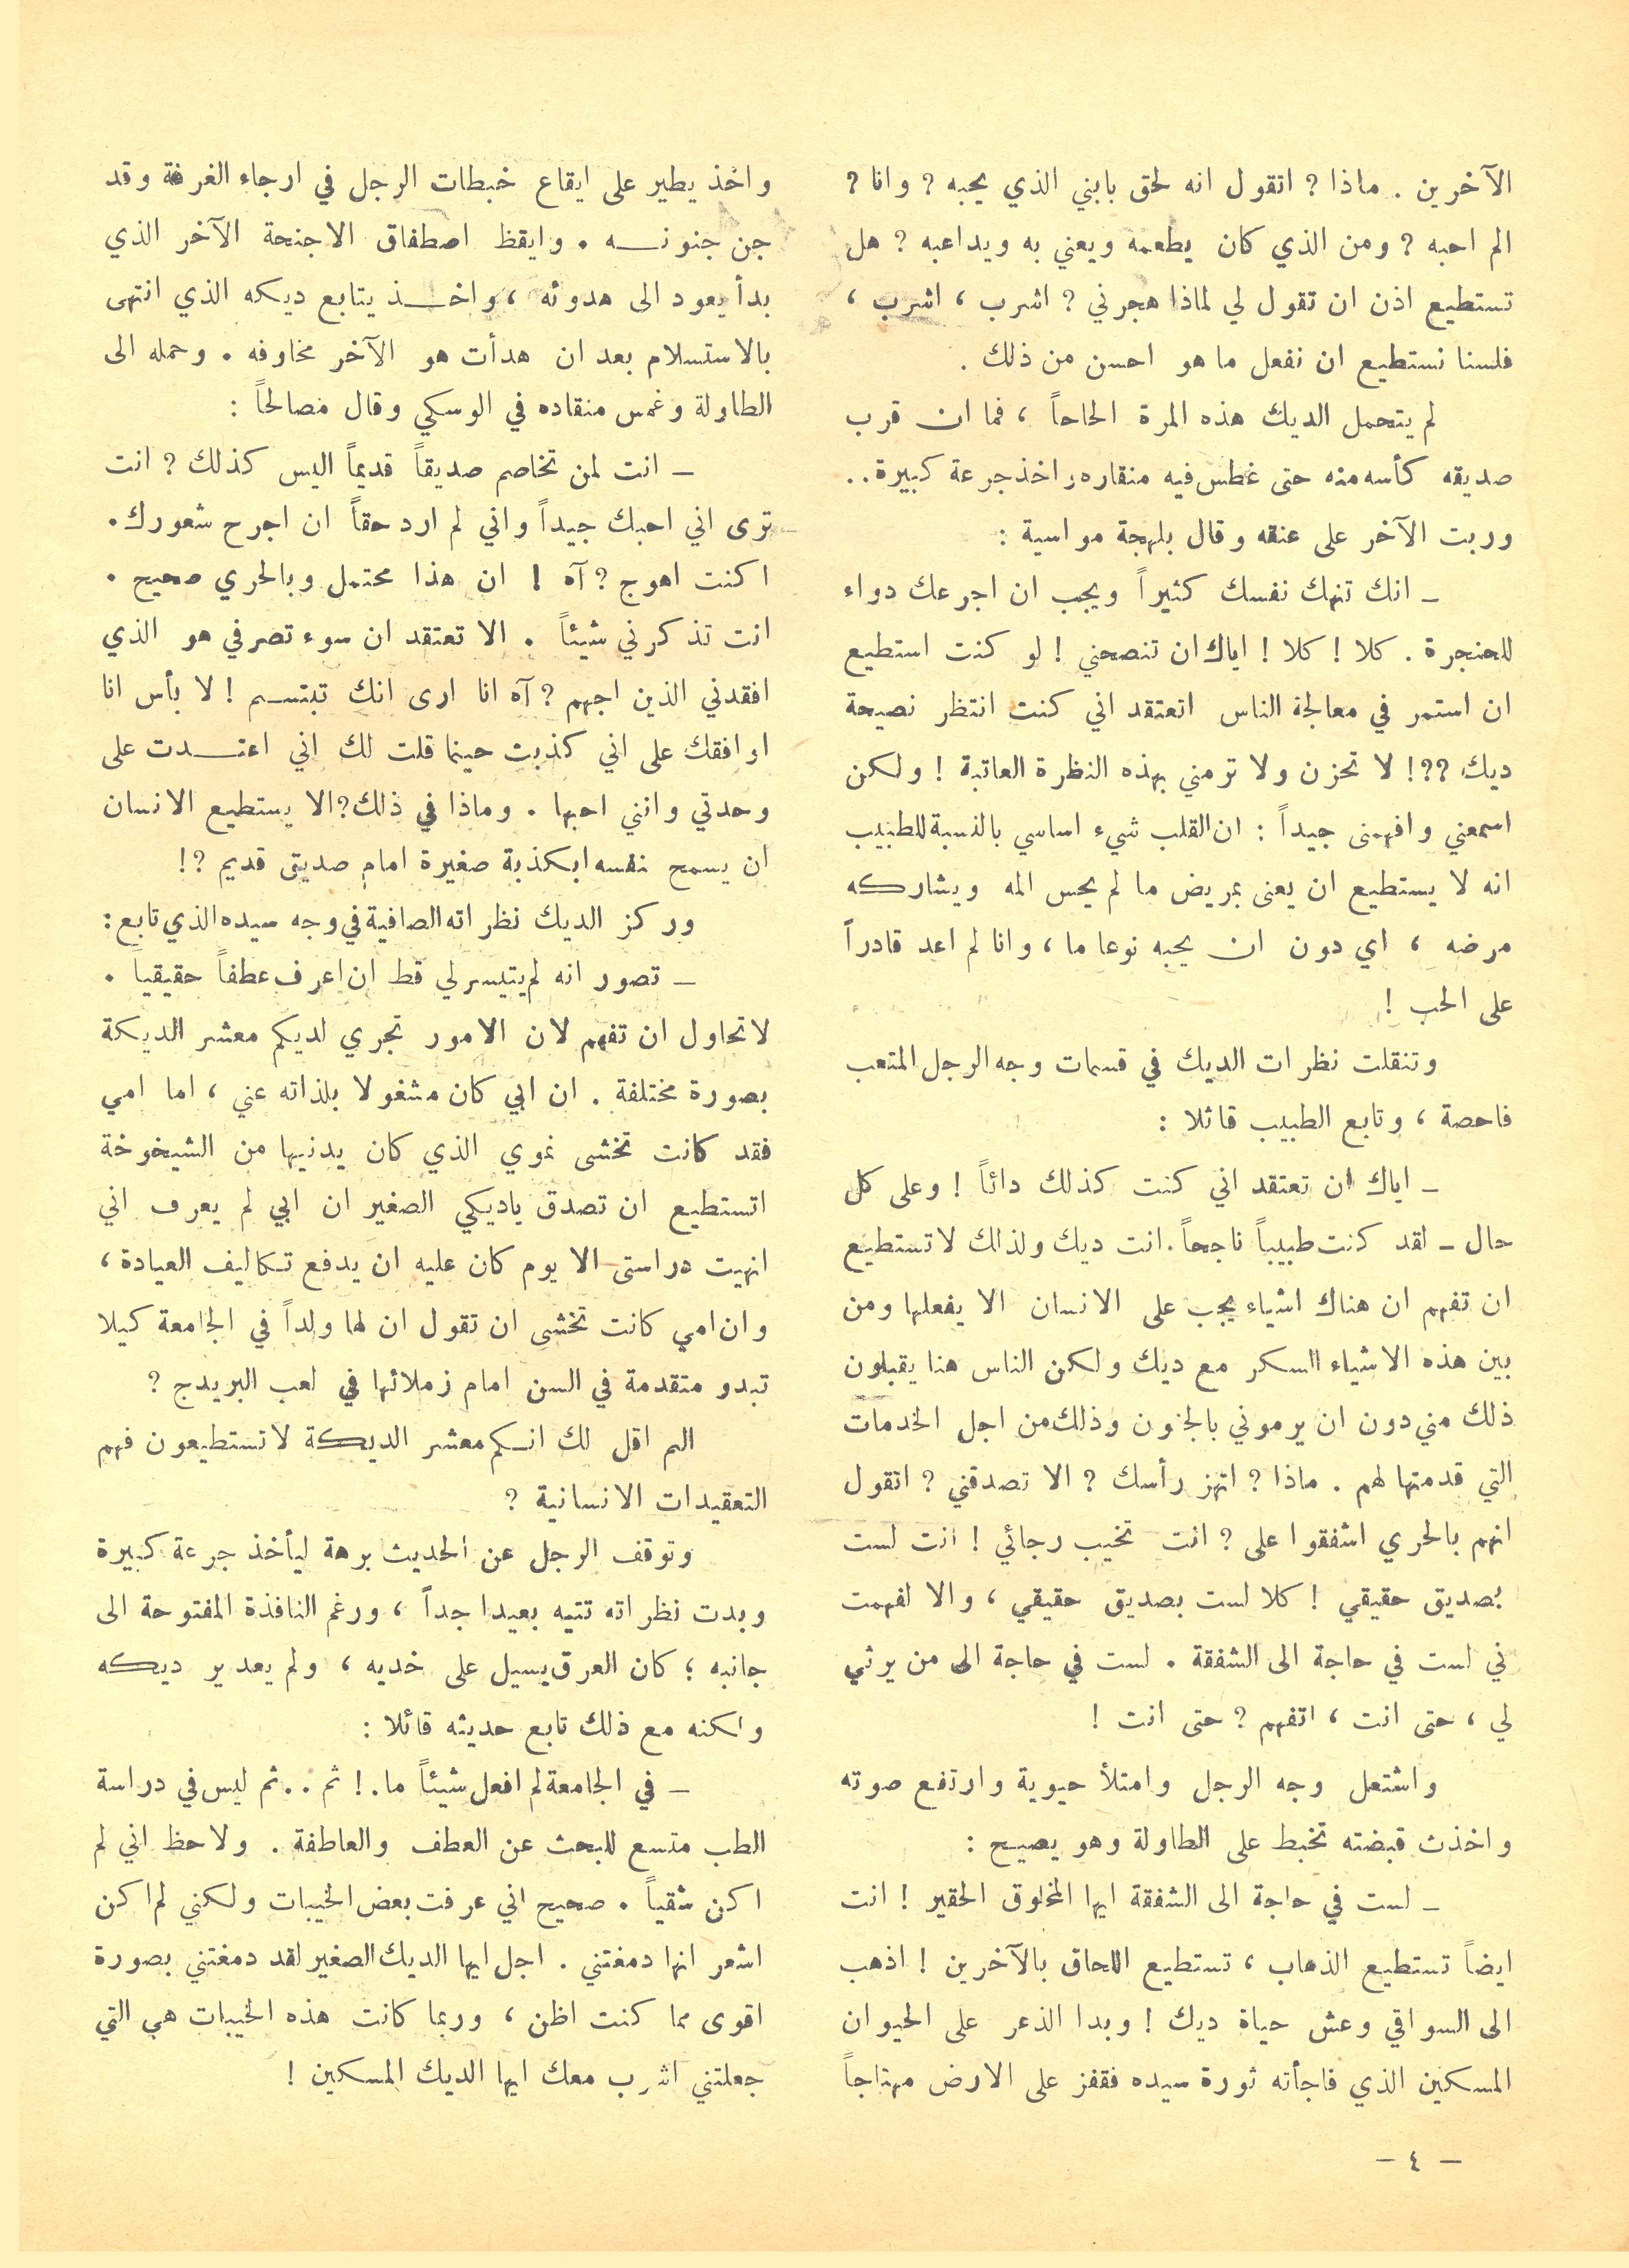 الآخرين . ماذا ? اتقول انه لحق بابني الذي يحبه ? وانا ?
الم احبه ? ومن الذي كان يطعمه ويعني به ويداعبه ? هل
تستطيع اذن ان تقول لي لماذا هجرني ? اشرب ، اشرب ،
فلسنا نستطيع ان نفعل ما هو احسن من ذلك .
لم يتحمل الديك هذه المرة الحاحاً ، فما ان قرب
صديقه كأسه منه حتى غطس فيه منقاره واخذ جرعة كبيرة..
وربت الآخر على عنقه وقال بلهجة مواسية :
ـ انك تنهك نفسك كثيراً ويجب ان اجرعك دواء
للحنجرة . كلا ! كلا ! اياك ان تنصحني ! لو كنت استطيع
ان استمر في معالجة الناس اتعتقد اني كنت انتظر نصيحة
ديك ??! لا تحزن ولا ترمني بهذه النظرة العاتبة ! ولكن
اسمعني وافهمنى جيداً : ان القلب شيء اساسي بالنسبة للطبيب
انه لا يستطيع ان يعنى بمريض ما لم يحس المه ويشاركه
مرضه ، اي دون ان يحبه نوعا ما ، وانا لم اعد قادراً
على الحب !
وتنقلت نظرات الديك في قسمات وجه الرجل المتعب
فاحصة ، وتابع الطبيب قائلا :
ـ اياك ان تعتقد اني كنت كذلك دائاً ! وعلى كل
حال ـ لقد كنت طبيباً ناجحاً . انت ديك ولذلك لا تستطيع
ان تفهم ان هناك اشياء يجب على الانسان الا يفعلها ومن
بين هذه الاشياء السكر مع ديك ولكن الناس هنا يقبلون
ذلك مني دون ان يرموني بالجنون وذلك من اجل الخدمات
التي قدمتها لهم . ماذا ? اتهز رأسك ? الا تصدقني ? اتقول
انهم بالحري اشفقوا على ? انت تخيب رجائي ! انت لست
بصديق حقيقي ! كلا لست بصديق حقيقي ، والا لفهمت
ني لست في حاجة الى الشفقة . لست في حاجة الى من يرثي
لي ، حتى انت ، اتفهم ? حتى انت !
واشتعل وجه الرجل وامتلأ حيوية وارتفع صوته
واخذت قبضته تخبط على الطاولة وهو يصيح :
ـ لست في حاجة الى الشفقة ايها المخلوق الحقير ! انت
ايضاً تستطيع الذهاب ، تستطيع اللحاق بالآخرين ! اذهب
الى السواقي وعش حياة ديك ! وبدا الذعر على الحيوان
المسكين الذي فاجأته ثورة سيده فقفز على الارض مهتاجاً
واخذ يطير على ايقاع خبطات الرجل في ارجاء الغرفة وقد
جن جنونه . وايقظ اصطفاق الاجنحة الآخر الذي
بدأ يعود الى هدوئه ، واخذ يتابع ديكه الذي انتهى
بالاستسلام بعد ان هدأت هو الآخر مخاوفه . وحمله الى
الطاولة وغمس منقاده في الوسكي وقال مصالحاً :
ـ انت لمن تخاصم صديقاً قديماً اليس كذلك ? انت
ترى اني احبك جيداً واني لم ارد حقاً ان اجرح شعورك .
اكنت اهوج ? آه ! ان هذا محتمل وبالحري صحيح .
انت تذكرني شيئاً . الا تعتقد ان سوء تصرفي هو الذي
افقدني الذين احبهم ? آه انا ارى انك تبتسم ! لا بأس انا
اوافقك على اني كذبت حينما قلت لك اني اعتدت على
وحدتي وانني احبها . وماذا في ذلك ? الا يستطيع الانسان
ان يسمح نفسه ابكذبة صغيرة امام صديق قديم ?!
وركز الديك نظراته الصافية في وجه سيده الذي تابع :
ـ تصور انه لم يتيسر لي قط ان اعرف عطفاً حقيقياً .
لا تحاول ان تفهم لان الامور تجري لديكم معشر الديكة
بصورة مختلفة . ان ابي كان مشغولا بلذاته عني ، اما امي
فقد كانت تخشى نموي الذي كان يدنيها من الشيخوخة
اتستطيع ان تصدق ياديكي الصغير ان ابي لم يعرف اني
انهيت دراستى الا يوم كان عليه ان يدفع تكاليف العيادة ،
وان امي كانت تخشى ان تقول ان لها ولداً في الجامعة كيلا
تبدو متقدمة في السن امام زملائها في لعب البريدج ?
الم اقل لك انكم معشر الديكة لا تستطيعون فهم
التعقيدات الانسانية ?
وتوقف الرجل عن الحديث برهة ليأخذ جرعة كبيرة
وبدت نظراته تتيه بعيدا جداً ، ورغم النافذة المفتوحة الى
جانبه ؛ كان العرق يسيل على خديه ، ولم يعد ير ديكه
ولكنه مع ذلك تابع حديثه قائلا :
ـ في الجامعة لم افعل شيئاً ما . ! ثم . . ثم ليس في دراسة
الطب متسع للبحث عن العطف والعاطفة . ولاحظ اني لم
اكن شقياً . صحيح اني عرفت بعض الخيبات ولكني لم اكن
اشعر انها دمغتني . اجل ايها الديك الصغير لقد دمغتني بصورة
اقوى مما كنت اظن ، وربما كانت هذه الخيبات هي التي
جعلتني اشرب معك ايها الديك المسكين !
ـ ٤ ـ